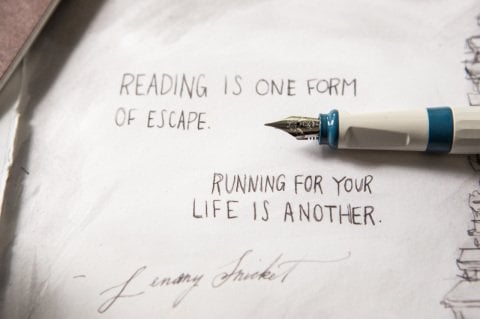 READING IS ONE FORM
OF ESCAPE.
RUNNING FOR YOUR
LIFE IS ANOTHER.
- Lemony Snicket